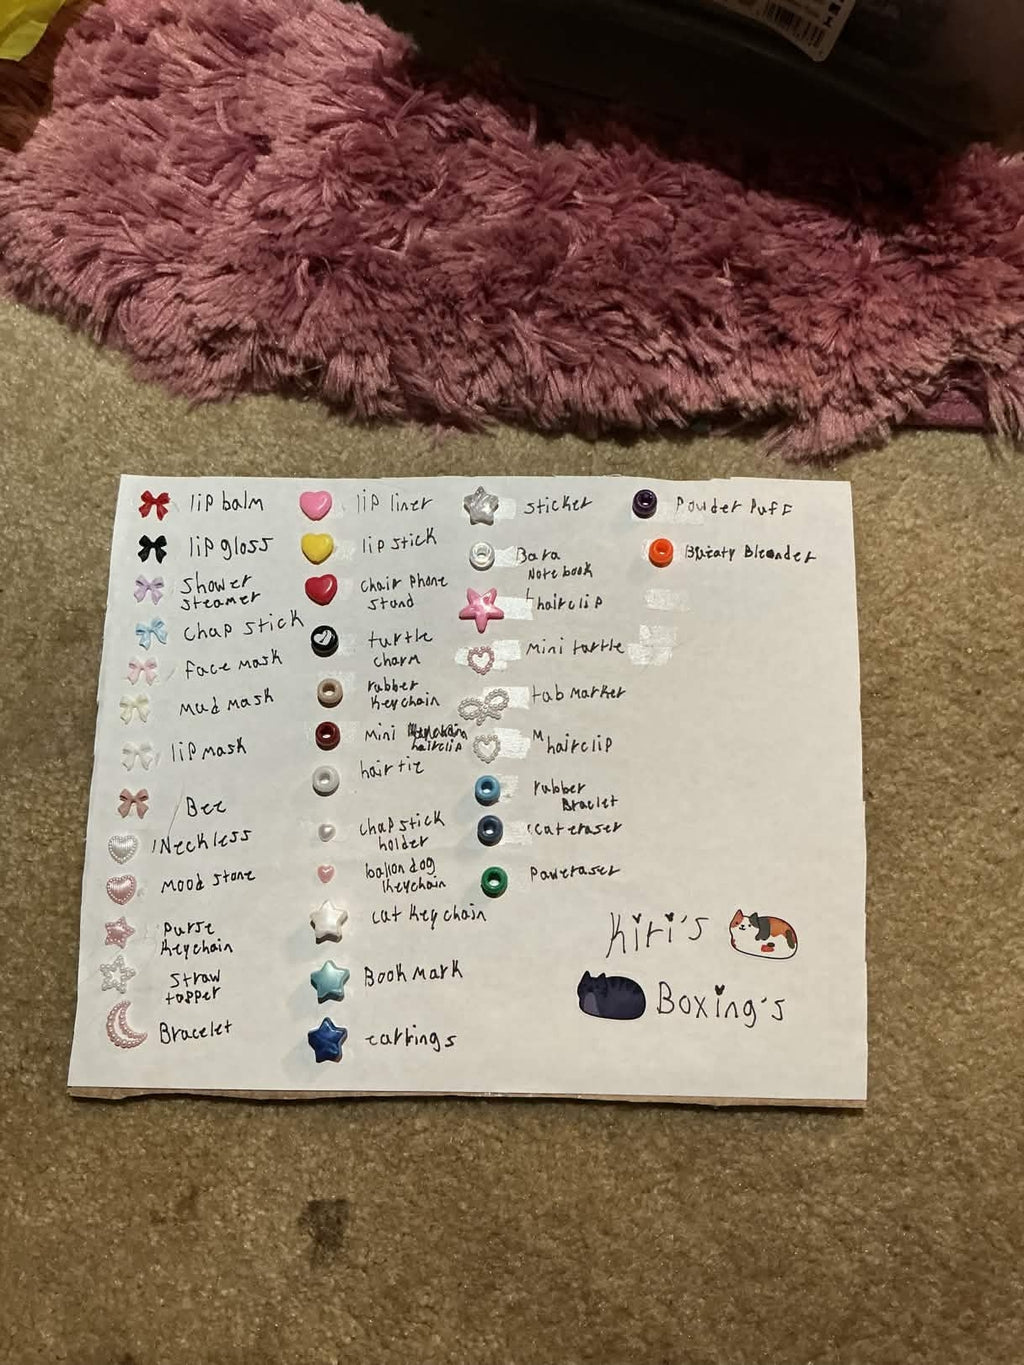 lip balm
lip gloss
Shower
steamer
chap stick
face mask
mud mask
lip mask
Bee
Neckless
mood stone
Purse
Keychain
Straw
topper
Bracelet
lip liner
lip stick
Chair Phone
stand
turtle
charm
rubber
Keychain
Mini
hairclip
hair tie
chapstick
holder
ballon dog
Keychain
cat Keychain
Bookmark
earrings
sticker
Bara
Notebook
hairclip
Mini turtle
tab marker
M hairclip
rubber
Braclet
cat eraser
Paw eraser
Powder Puff
Blender
Kiri's
Boxing's